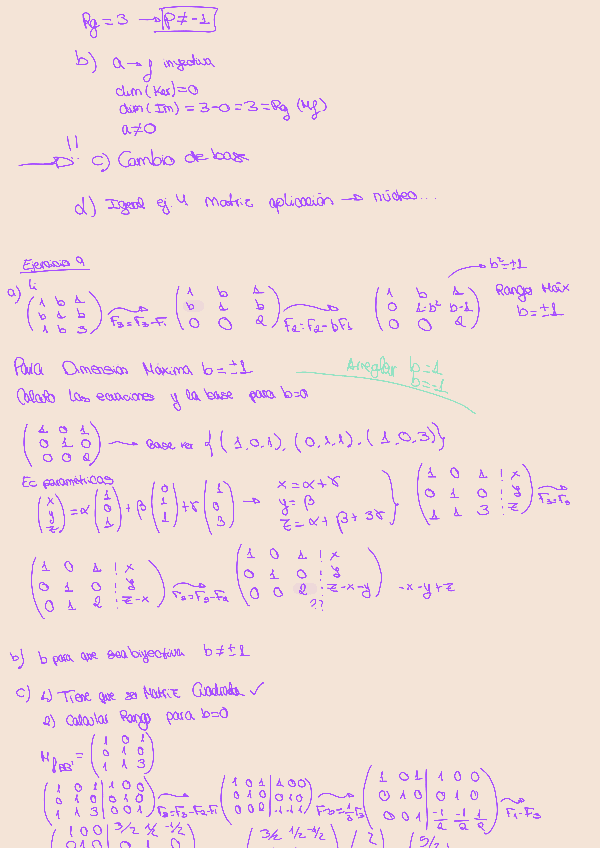 Rg = 3 → p ≠ -1
b) a → f inyectiva
dim(Ker) = 0
dim(Im) = 3-0 = 3 = Rg (Mf)
a ≠ 0
!! → c) Cambio de base
d) Igual ej. 4 Matriz aplicación → núcleo...
Ejercicio 9
a) (1 b 1 / b 1 b / 1 b 3) F3=F3-F1 (1 b 1 / b 1 b / 0 0 2) F2=F2-bF1 (1 b 1 / 0 1-b² b-1 / 0 0 2) → b²=±1 Rango Máx b=±1
Para Dimension Máxima b=±1 Arreglar b=1 b=-1
Calculo las ecuaciones y la base para b=0
(1 0 1 / 0 1 0 / 0 0 2) → Base { (1,0,1), (0,1,1), (1,0,3)}
Ec parametricas
(x y z) = α (1 0 1) + β (0 1 1) + γ (1 0 3) → x=α+γ y=β z=α+β+3γ } (1 0 1 ¦ x / 0 1 0 ¦ y / 1 1 3 ¦ z)
(1 0 1 ¦ x / 0 1 0 ¦ y / 0 1 2 ¦ z-x) F3=F3-F2 (1 0 1 ¦ x / 0 1 0 ¦ y / 0 0 2 ¦ z-x-y) -x-y+z
??
b) b para que sea biyectiva b≠±1
c) 1) Tiene que ser Matriz Cuadrada ✓
2) Calcular Rango para b=0
M f BB' = (1 0 1 / 0 1 0 / 1 1 3)
(1 0 1 | 1 0 0 / 0 1 0 | 0 1 0 / 1 1 3 | 0 0 1) F3=F3-F2-F1 (1 0 1 | 1 0 0 / 0 1 0 | 0 1 0 / 0 0 2 | -1 -1 1) F3=1/2F3 (1 0 1 | 1 0 0 / 0 1 0 | 0 1 0 / 0 0 1 | -1/2 -1/2 1/2) F1-F3
(1 0 0 3/2 1/2 -1/2 / 0 1 0 0 1 0 (3/2 1/2 -1/2 (2) (5/2